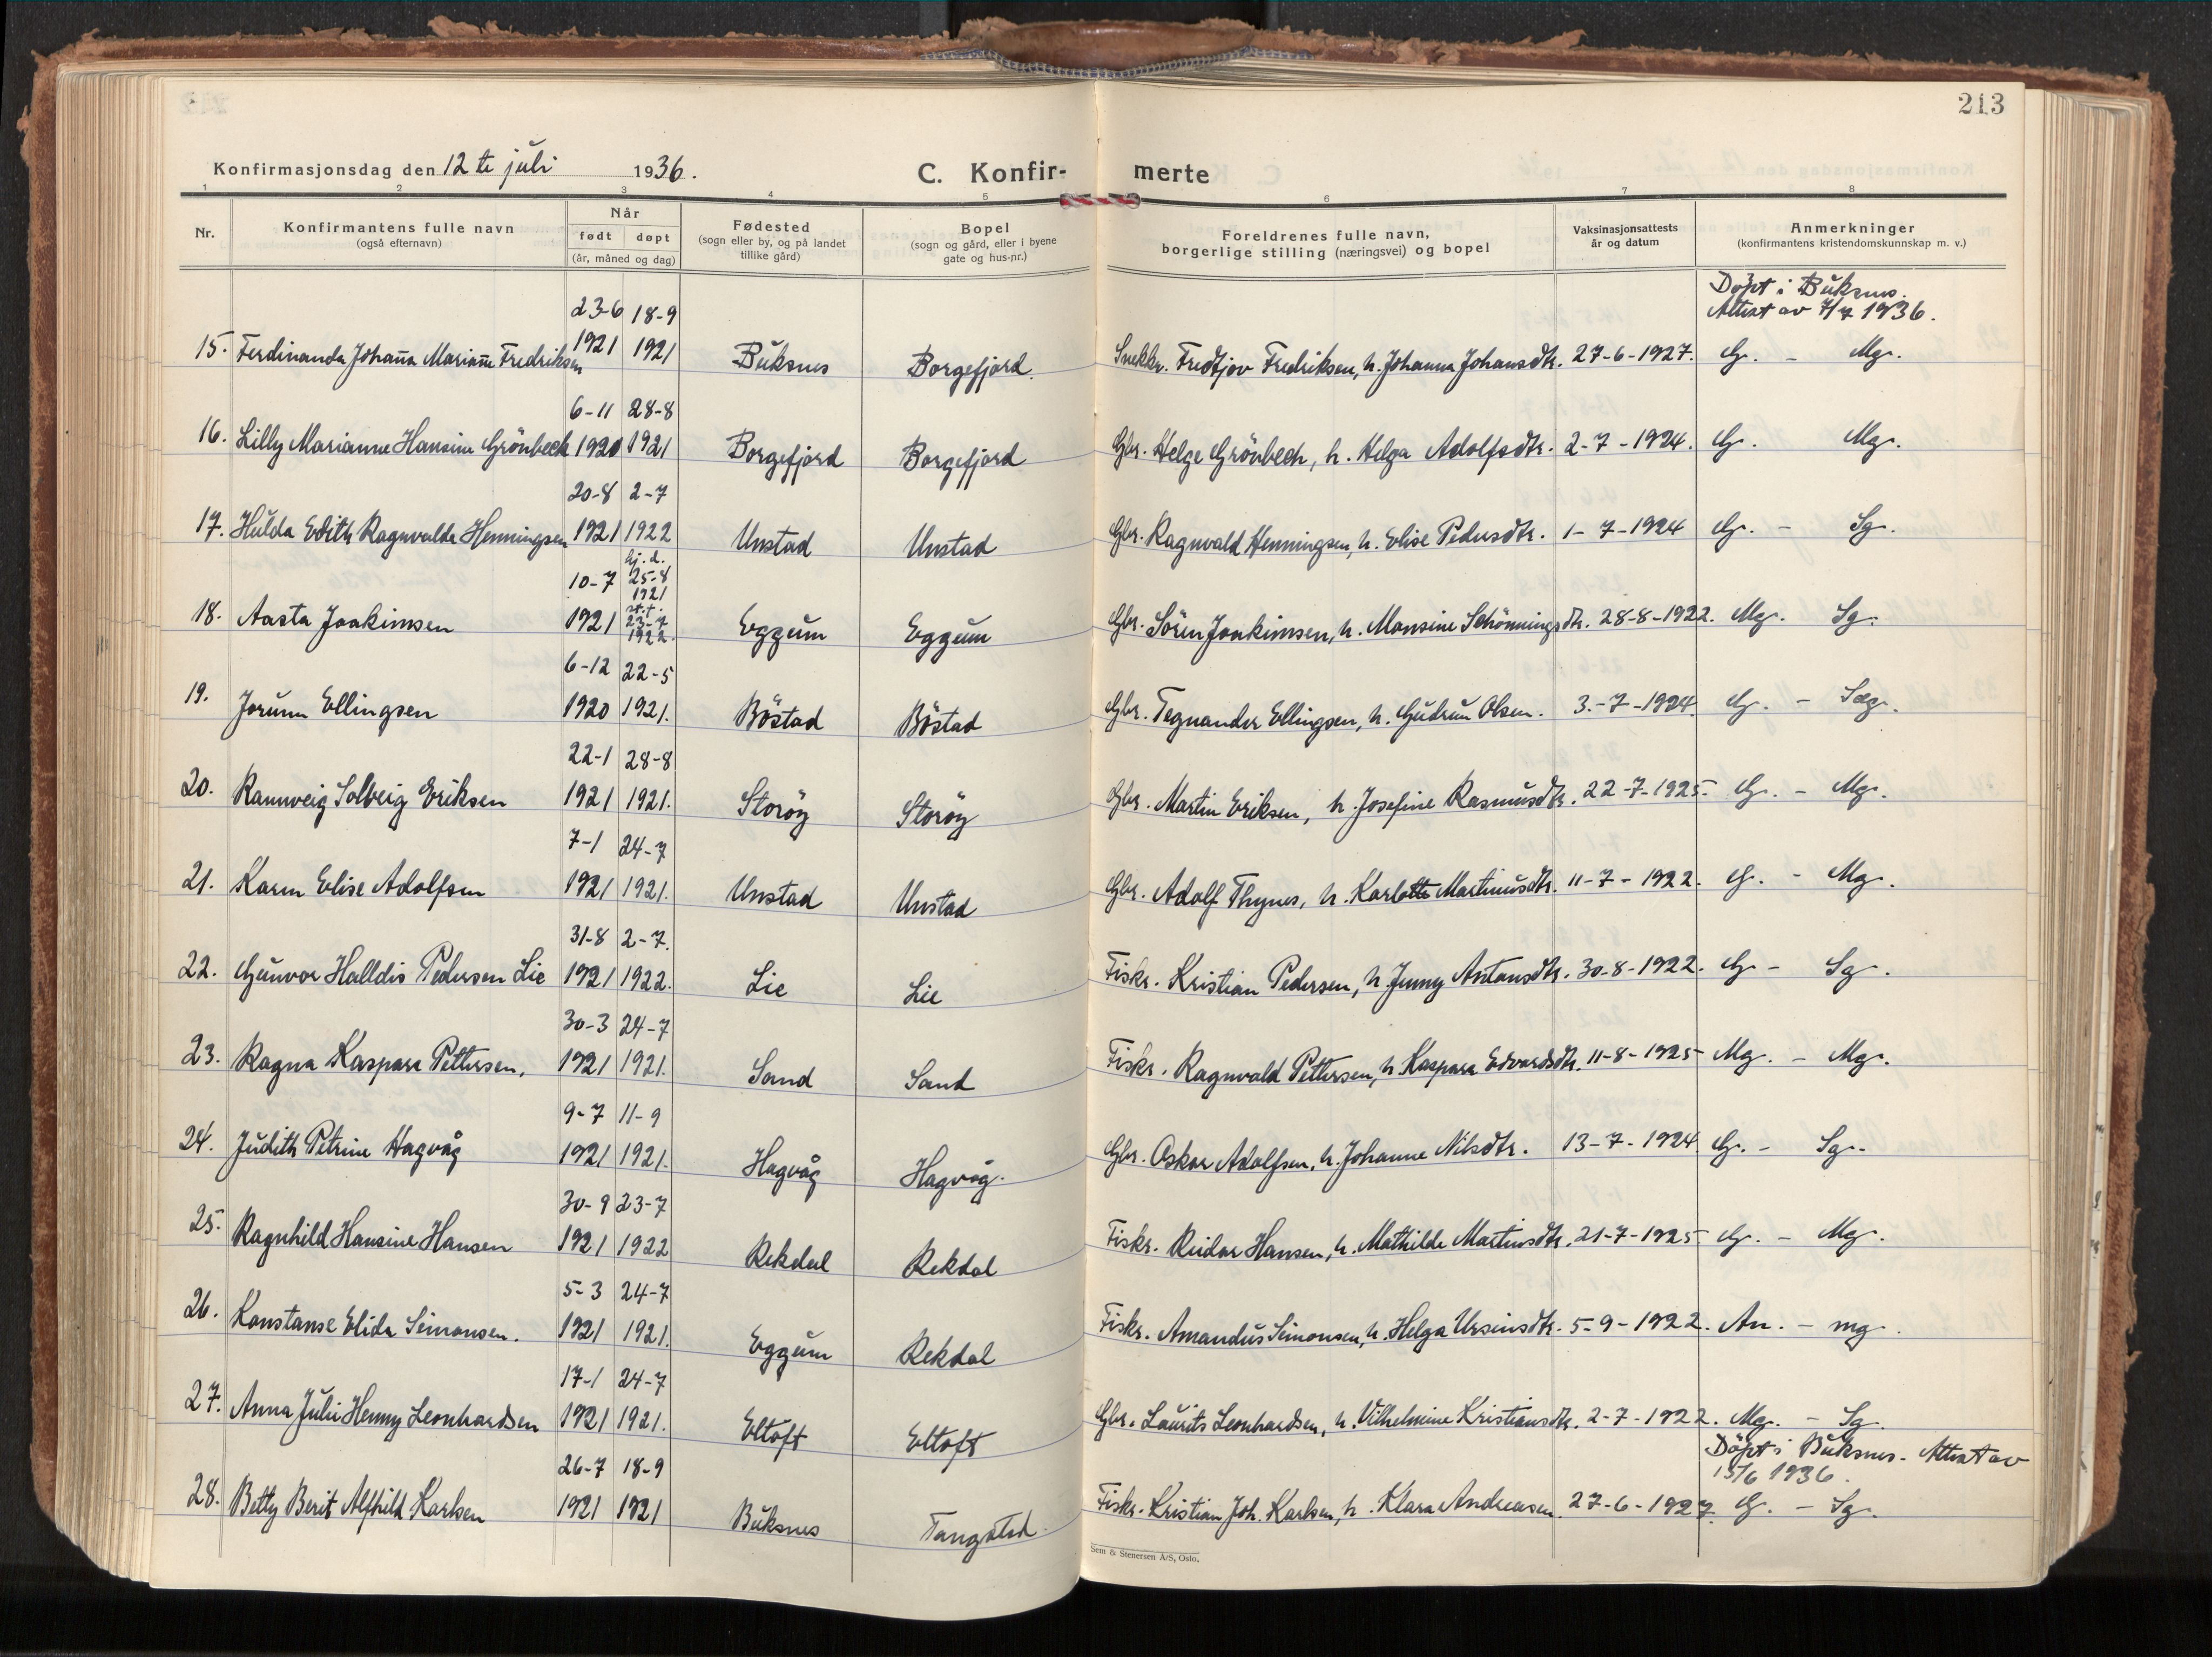 213
Konfirmasjonsdag den 12 te juli 1936. C. Konfir- merte
1 2 3 4 5 6 7 8
Nr. Konfirmantens fulle navn (også efternavn) Når født døpt (år, måned og dag) Fødested (sogn eller by, og på landet tillike gård) Bopel (sogn og gård, eller i byene gate og hus-nr.) Foreldrenes fulle navn, borgerlige stilling (næringsvei) og bopel Vaksinasjonsattests år og datum Anmerkninger (konfirmantens kristendomskunnskap m. v.)
23-6 18-9 Döpt i Buksnes. Attest av 7/7 1936.
15. Ferdinanda Johanna Marianne Fredriksen 1921 1921 Buksnes Borgefjord. Snekkr. Fredtjov Fredriksen, h. Johanna Johansdtr. 27-6-1927. G. - Mg.
6-11 28-8
16. Lilly Marianne Hansine Grönbech 1920 1921 Borgefjord Borgefjord Gbr. Helge Grönbech, h. Helga Adolfsdtr. 2-7-1924. G. Mg.
20-8 2-7
17. Hulda Edith Ragnvalda Henningsen 1921 1922 Unstad Unstad Gbr. Ragnvald Henningsen, h. Elise Pedersdtr. 1-7-1924 G. - Sg.
10-7 hj. d. 25-8 1921
18. Aasta Joakimsen 1921 st. f. 23-7 1922. Eggum Eggum Gbr. Sören Joakimsen, h. Monsine Schönningsdtr. 28-8-1922. Mg. Sg.
6-12 22-5
19. Jorunn Ellingsen 1920 1921. Böstad Böstad Gbr. Tegnander Ellingsen, h. Gudrun Olsen. 3.-7-1924. G. - Sæg.
22-1 28-8
20. Rannveig Solveig Eriksen 1921 1921. Storöy Storöy Gbr. Martin Eriksen, h. Josefine Rasmusdtr. 22-7-1925. G. - Mg.
7-1 24-7
21. Karen Elise Adolfsen 1921 1921. Unstad Unstad Gbr. Adolf Thynes, h. Karlotte Martinusdtr. 11-7-1922. G. - Mg.
31-8 2-7.
22. Gunvor Halldis Pedersen Lie 1921 1922. Lie Lie Fiskr. Kristian Pedersen, h. Jenny Antonsdtr. 30-8-1922. G - Sg.
30-3 24-7
23. Ragna Kaspara Pettersen. 1921 1921. Sand Sand Fiskr. Ragnvald Pettersen, h. Kaspara Edvardsdtr. 11-8-1925 Mg. - Mg.
9-7 11-9
24. Judith Petrine Hagvåg 1921 1921. Hagvåg Hagvåg. Gbr. Oskar Adolfsen, h. Johanne Nilsdtr. 13-7-1924. G. - Sg.
30-9 23-7
25. Ragnhild Hansine Hansen 1921 1922 Rekdal Rekdal Fiskr. Reidar Hansen, h. Mathilde Martinsdtr. 21-7-1925 G. - Mg.
5-3 24-7
26. Konstanse Elida Simonsen. 1921 1921. Eggum Rekdal Fiskr. Amandus Simonsen, h. Helga Ursinsdtr. 5-9-1922. An. - mg.
17-1 24-7
27. Anna Julie Henny Leonhardsen 1921 1921. Eltoft Eltoft Gbr. Laurits Leonhardsen, h. Vilhelmine Kristiansdtr. 2-7-1922. Mg. - Sg.
26-7 18-9 Döpt i Buksnes. Attest av 15/6 1936.
28. Betty Berit Alfhild Karlsen 1921 1921 Buksnes Tangstad Fiskr. Kristian Joh. Karlsen, h. Klara Andreasen. 27-6-1927. G. - Sg.
Sem & Stenersen A/S, Oslo.